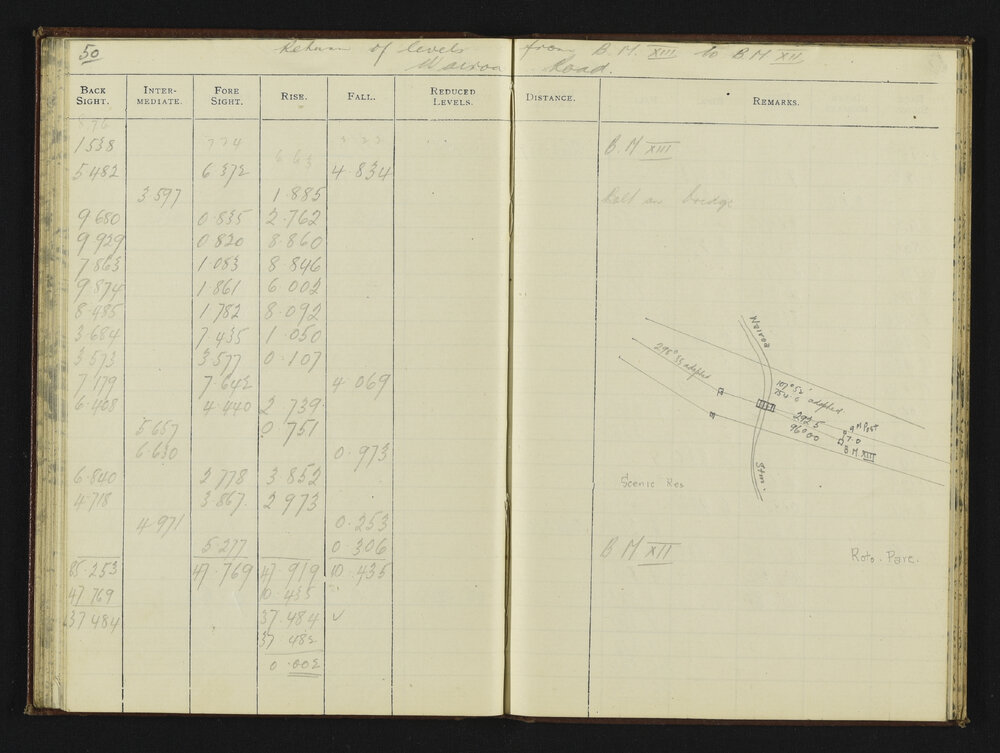 50 Return of levels from B.M. XIII to B.M XII
Wairoa Road.
BACK SIGHT. INTER-MEDIATE. FORE SIGHT. RISE. FALL. REDUCED LEVELS. DISTANCE. REMARKS.
1 538 B.M XIII
5 482 6 372 4 834
3 597 1.885 bolt on bridge
9 680 0 835 2.762
9 929 0 820 8.860
7 863 1 083 8 846
9 874 1 861 6 002
8 485 1 782 8 092
3 684 7 435 1 050
3 573 3 577 0 107
7 179 7 642 4 069
6 408 4 440 2 739
5 657 0 751
6 630 0.973
6.840 2 778 3 852
4 718 3 867 2 973
4 971 0.253
5 277 0 306 B M XII
85.253 47.769 47.919 10.435
47 769 10.435
37 484 37.484 ✓
37.482
0.002
Wairoa
295° 33 adopted
107° 52'
754.6 adopted
292.5
96°00
9 M Post
7.0
B.M. XIII
Scenic Res
Roto. Pare.